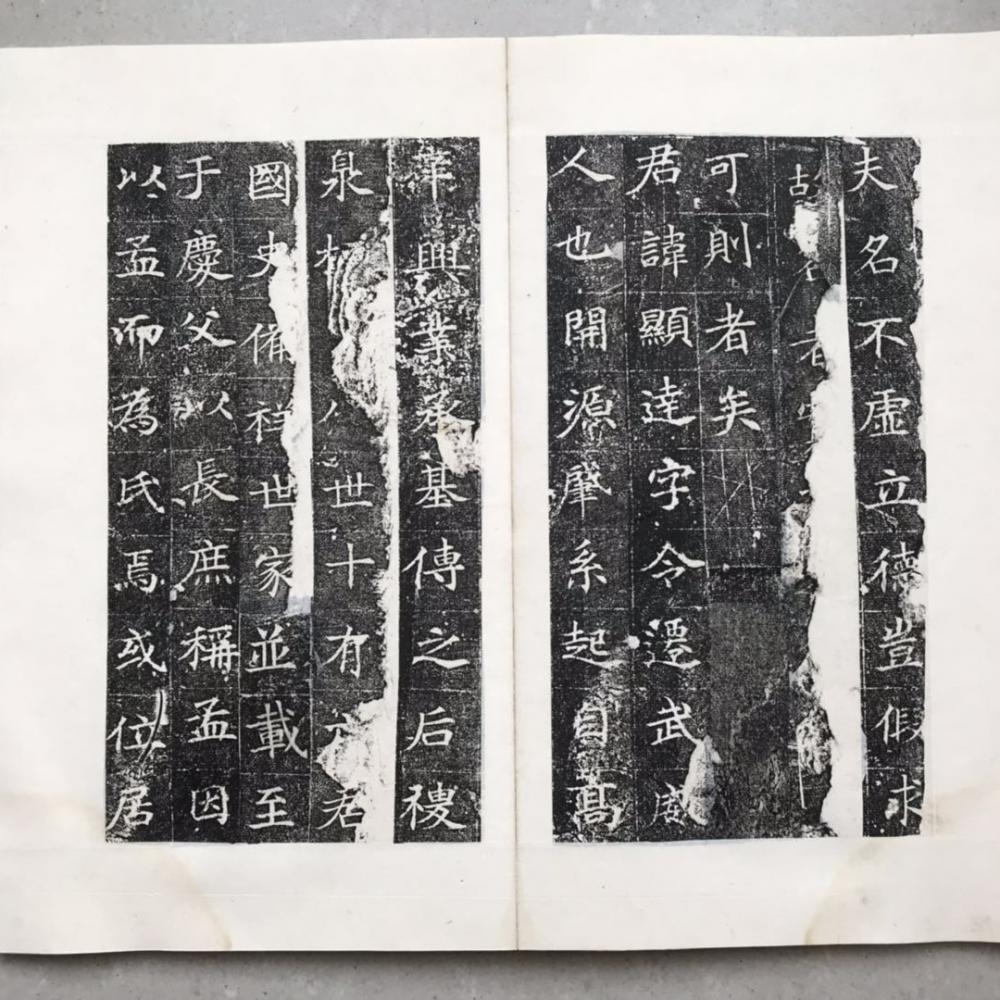 夫名不虛立德豈假求
古者
可則者矣
君諱顯達字令遷武威
人也開源肇系起自高
莘興業承基傳之后稷
泉世十有六君
國史備祥世家並載至
于慶父以長庶稱孟因
以孟而為氏焉或位居